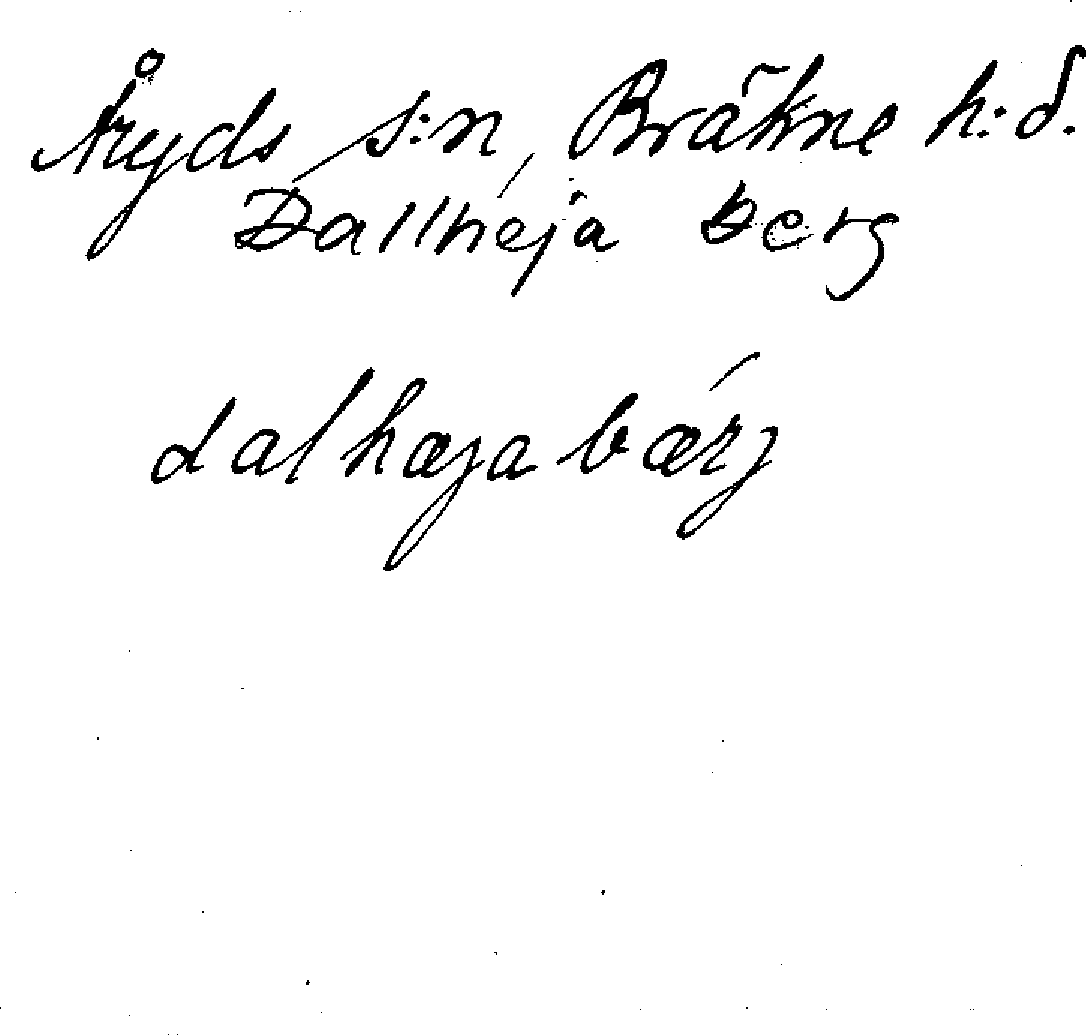 Åryds s:n, Bräkne h:d.
Dallhéja berg
dalhæjabǽrj